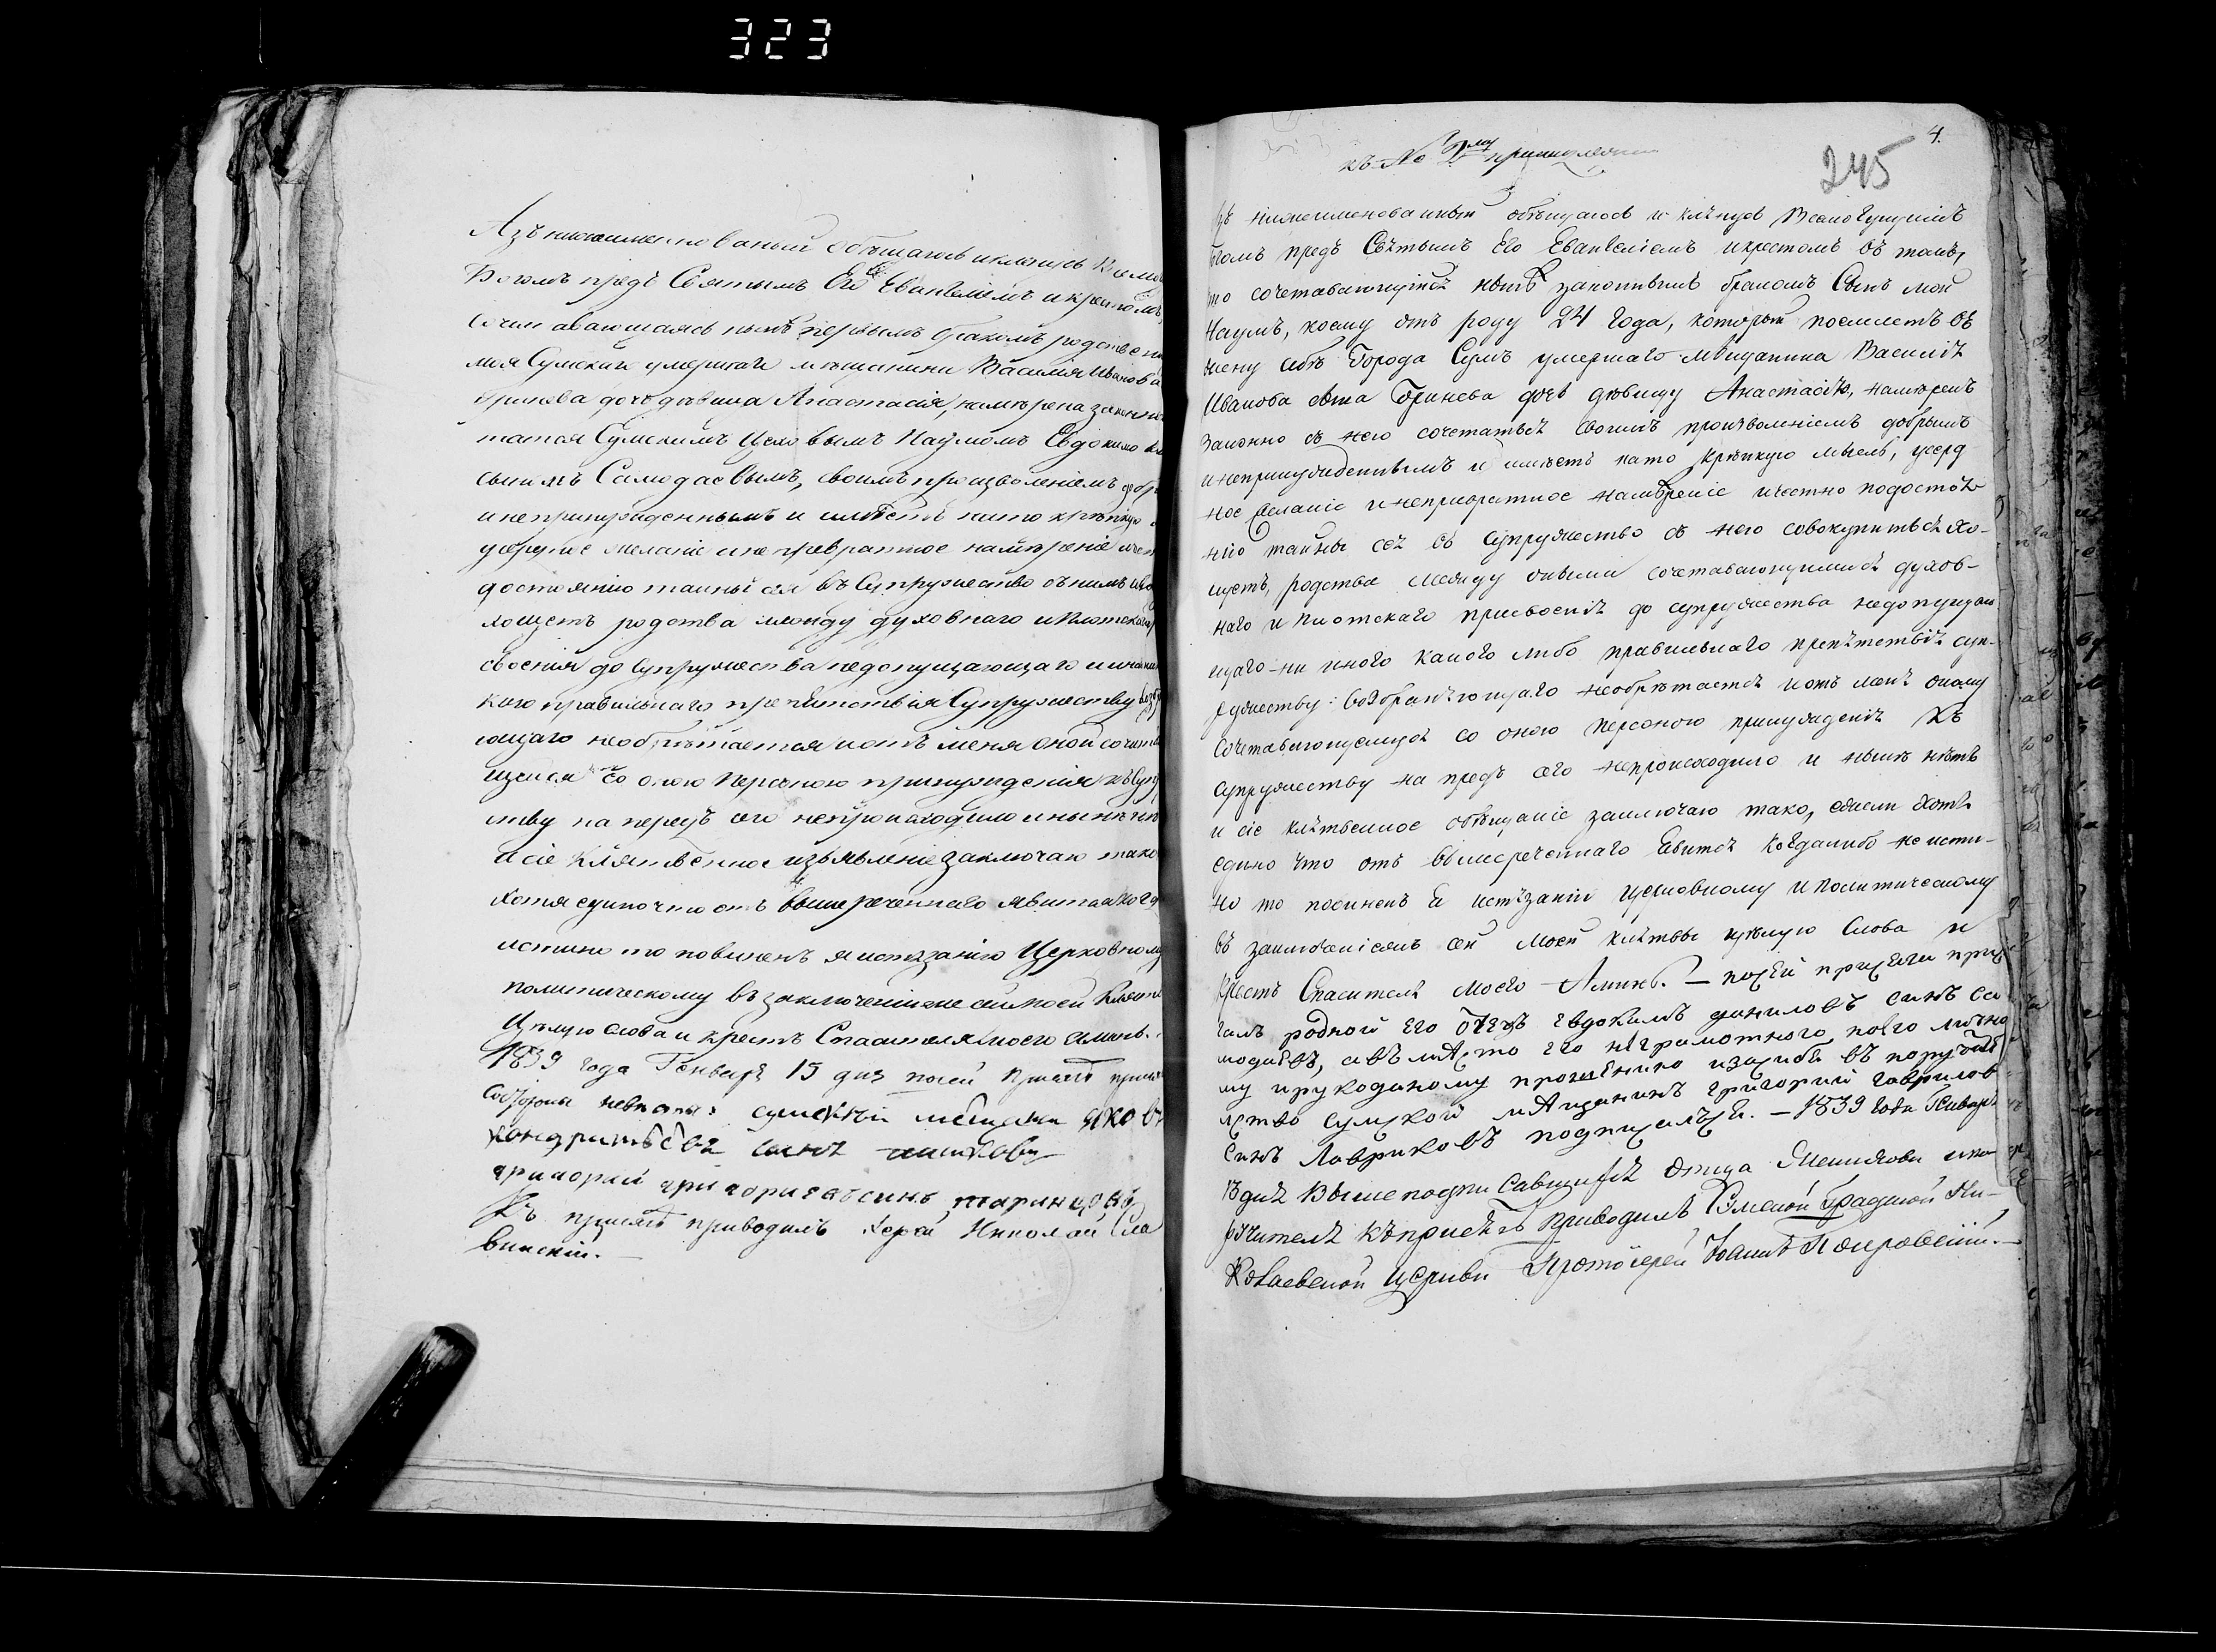 323
Азъ нижеименованный обѣщаюсь и кленусь Всемо
Богомъ предъ Святымъ Его Евангеліемъ и крестомъ,
сочитавающаясь нынѣ первымъ бракомъ родствен
моя Сумскаго умершаго мѣщанина Василія Иванова
Гринева дочь дѣвица Анастасія, намѣрена законно
татся Сумскимъ Цеховымъ Наумомъ Евдокимо
сыномъ Самодаевымъ, своимъ произволеніемъ добр
и непринужденнымъ и имѣетъ нато крѣпкую
усердное желаніе и не превратное намѣреніе и чест
достоянію тайны сея въ Супружество съ нимъ
хощетъ родства между духовнаго и Плотскаго
своенія до Супружества недопущающаго и инаго
каго правильнаго препятствія Супружеству возбр
ющаго необрѣтается и отъ меня оной сочита
щейся со оною Персоною принужденія къ Супр
ству на передъ сего непроисходило и нынѣ нѣ
и сіе Клятвенное изъявленіе заключаю тако
хотя едино что отъ вышереченнаго явится когда
истинно то повиненъ я истязанію Церковному
политическому въ заключеніи же сей моей Клятвы
Цѣлую слова и крестъ Спасителя моего аминь.
1839 года Генваря 15 дня посей присягѣ
стороны невѣсты: сумскій мещанин яковъ
кондратьевъ синъ
григорий григориевъ синъ
Къ присягѣ приводилъ Іерей Николай Сла
винскій.
4.
къ № 7му
245
зъ нижеименованный обѣщаюсь и клѣнусь Всемогущимъ
огомъ предъ Святымъ Его Евангеліемъ и крестомъ въ томъ,
что сочетавающійся нынѣ законнымъ бракомъ Сынъ мой
Наумъ, коему отъ роду 24 года, который поемлетъ въ
жену себѣ Города Сумъ умершаго мѣщанина Василія
Иванова сына Гринева дочь дѣвицу Анастасію, намѣренъ
Законно съ нею сочетаться своимъ произволеніемъ добрымъ
и непринужденнымъ и имѣетъ нато крѣпкую мысль, усерд
ное желаніе и непревратное намѣреніе и честно подостоя
нію тайны сея въ супружество съ нею совокупиться хо-
щетъ, родства между оными сочетавающимися духов-
наго и Плотскаго присвоенія до супружества недопущаю
щаго ни иного какого либо правильнаго препятствія суп-
ружеству возбраняющаго необрѣтается и отъ меня оному
сочетавающемуся со оною персоною принужденія къ
супружеству на предъ сего непроисходило и нынѣ нѣтъ
и сіе клятвенное обѣщаніе заключаю тако, ежели хотя
едино что отъ вышереченнаго явится когдалибо не исти-
но то повиненъ я истязанію церковному и политическому
въ заключеніемъ сей моей клятвы цѣлую Слова и
крестъ Спасителя моего Аминь. — посей присяги прися
галъ родной его отецъ евдокимъ даниловъ синъ са
модаевъ, авъмѣсто его неграмотного, поего лично
му ирукоданому прошению изасибя въ поручите
лство сумской мѣщанинъ григорий гаврилов
синъ Лавриковъ подписалъся. — 1839 года Генваря
дня Вышеподписавшихся отца Жениховы и по
ручителя къ присягѣ приводилъ Сумской Градской Ни-
колаевской церкви Протоіерей Іоаннъ Покровскій.—